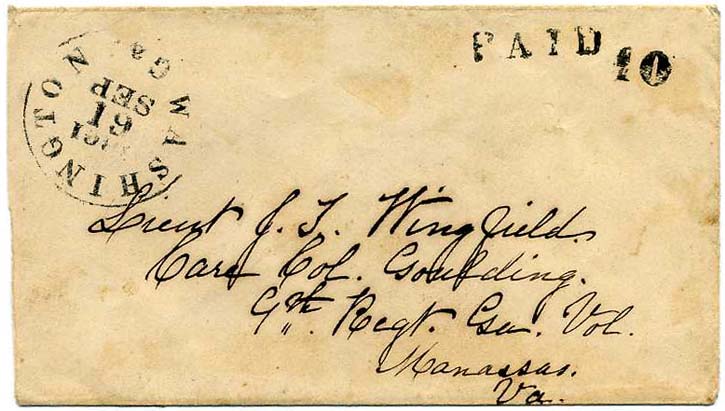 WASHINGTON
Ga.
SEP
19
PAID 10
Lieut J. T. Wingfield.
Care Col. Goulding.
9th. Regt. Ga. Vol.
Manassas.
Va.